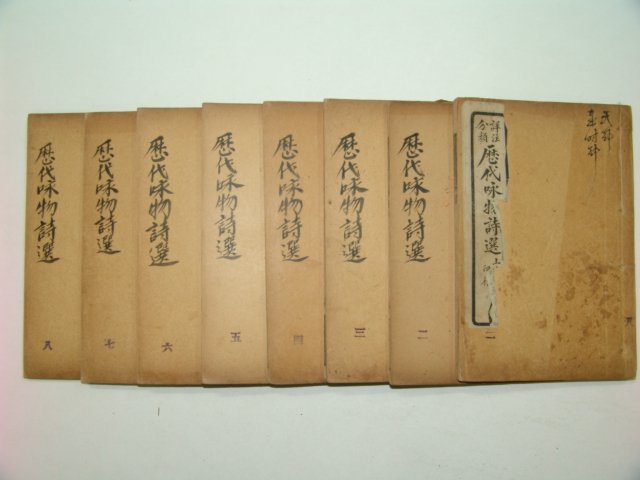 詳註
分類
歷代咏物詩選
上
一
歷代咏物詩選
二
歷代咏物詩選
三
歷代咏物詩選
四
歷代咏物詩選
五
歷代咏物詩選
六
歷代咏物詩選
七
歷代咏物詩選
八